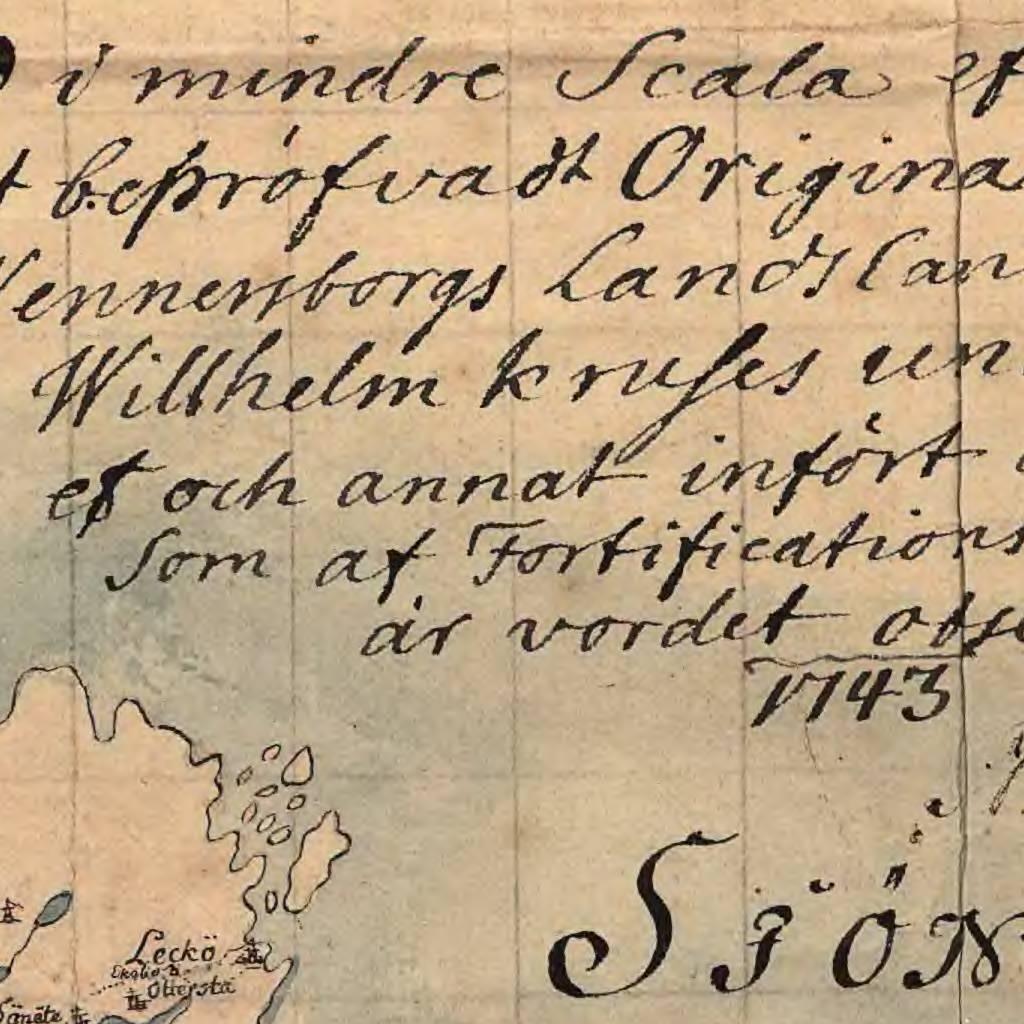 i mindre Scala ef
t beprófvadt Origina
Wennersborgs Lands Can
Willhelm kruses un
ett och annat infört
Som af Fortifications
är vordet obse
1743
SJÖN
Leckö
Ekebo
Ottersta